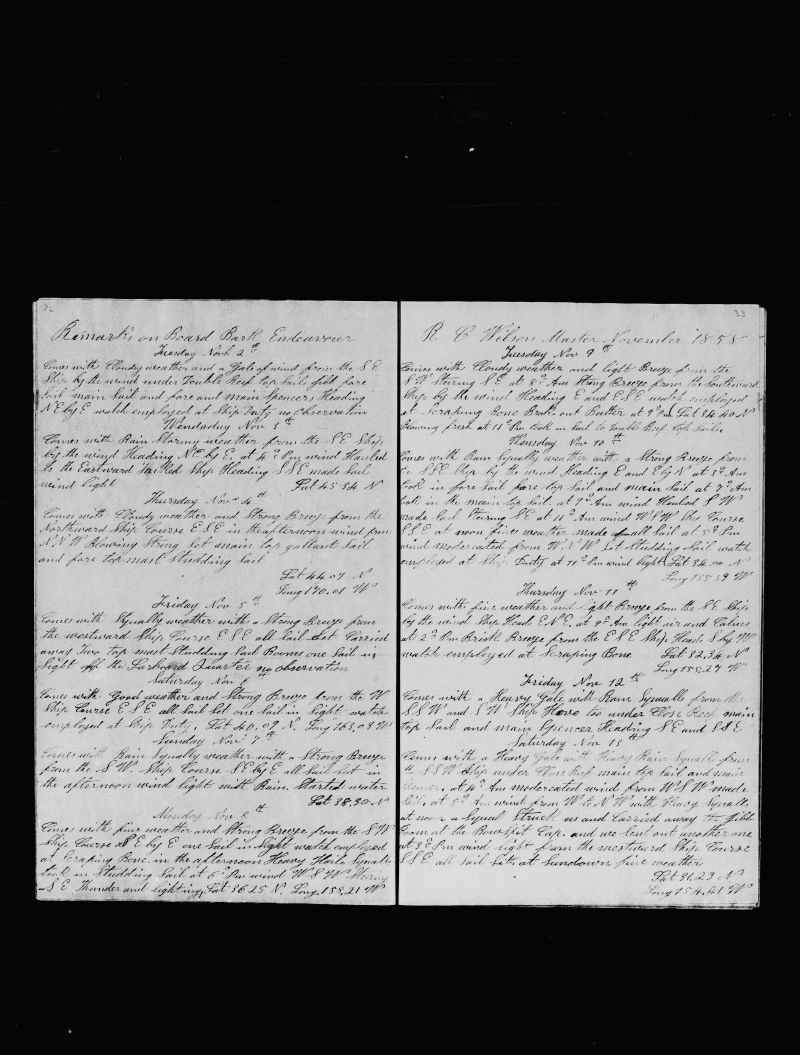 32
Remarks on Board Bark Endeavour
Tuesday Nov 2th
Comes with Cloudy weather and a Gale of wind from the S E
Ship by the wind under Double Reef top sails fore
Sail main Sail and fore and main Spencers Heading
NE by E watch employed at Ship Duty no observation
Wendnsday Nov 3th
Comes with Rain Stormy weather from the S E Ship
by the wind Heading NE by E. at 4° Pm wind Hauled
to the Eastward Ship Heading S S E made Sail
wind light Lat 45.34 N
Thursday Nov 4th
Comes with Cloudy weather and Strong Breeze from the
Northward Ship Course E S E in the afternoon wind from
N N W Blowing Strong Set main top gallant Sail
and fore top mast Studding Sail
Lat 44.07 N
Long 170.01 W
Friday Nov 5th
Comes with Squally weather with a Strong Breeze from
the westward Ship Course E S E all Sail Set Carried
away two top mast Studding Sail Booms one Sail in
Sight off the Larboard Quarter no observation
Saturday Nov 6th
Comes with Good weather and Strong Breeze from the W
Ship Course E S E all Sail Set one Sail in Sight watch
employed at Ship Duty, Lat 40.09 N. Long 163.03 W
Sunday Nov 7th
Comes with Rain Squally weather with a Strong Breeze
from the S W. Ship Course S E by E all Sail Set in
the afternoon wind light with Rain. Started water
Lat 38.30 N
Monday Nov 8th
Comes with fine weather and Strong Breeze from the S W
Ship Course S E by E one Sail in Sight watch employed
at Scraping Bone. in the afternoon Heavy Haile Squalls
took in Studding Sail at 6° Pm wind W S W Stearing
S E Thunder and lighting, Lat 36.25 N. Long 158.21 W
33
R C Wilson Master November 1858
Tuesday Nov 9th
Comes with Cloudy weather and light Breeze from the
S W Steering S E at 8° Am Strong Breeze from the Southward
Ship by the wind Heading E and E S E watch employed
at Scraping Bone Broke out Butter at 9° Pm Lat 34.40 N
Blowing fresh at 11° Pm took in Sail to Double Reef top Sails
Wensday Nov 10th
Comes with Rain Squally weather with a Strong Breeze from
S S E Ship by the wind Heading E and E by N at 3° Am
took in fore Sail fore top Sail and main Sail at 7° Am
took in the main top Sail. at 9° Am wind Hauled S W
made Sail Stering S E at 11° Am wind W S W Ship Course
S S E at noon fine weather made all Sail at 5° Pm
wind modercated from W N W Set Studding Sail watch
employed at Ship Duty at 11° Pm wind light Lat 34.00 N
Long 155.59 W
Thursday Nov 11th
Comes with fine weather and light Breeze from the S E Ship
by the wind Ship Head. E N E, at 9° Am light air and Calms
at 2° Pm Brisk Breeze from the E S E Ship Head. S by W
watch employed at Scraping Bone Lat 32.34 N
Long 155.27 W
Friday Nov 12th
Comes with a Heavy Gale with Rain Squalls from the
S S W and S W Ship Hove too under Close Reef main
top Sail and main Spencer Heading S E and S S E
Saturday Nov 13th
Comes with a Heavy Gale with Heavy Rain Squalls from
the S S W Ship under Close Reef main top Sail and main
Spencer, at 4° Am modercated wind from W S W made
Sail. at 8° Am wind from W & N W with Heavy Squalls,
at noon a Squal Struck us and Carried away the gibb
Boom at the Bowspit Cap. and we Sent out another one
at 3° Pm wind light from the westward Ship Course
S S E all Sail Set, at Sundown fine weather
Lat 31.23 N
Long 154.41 W